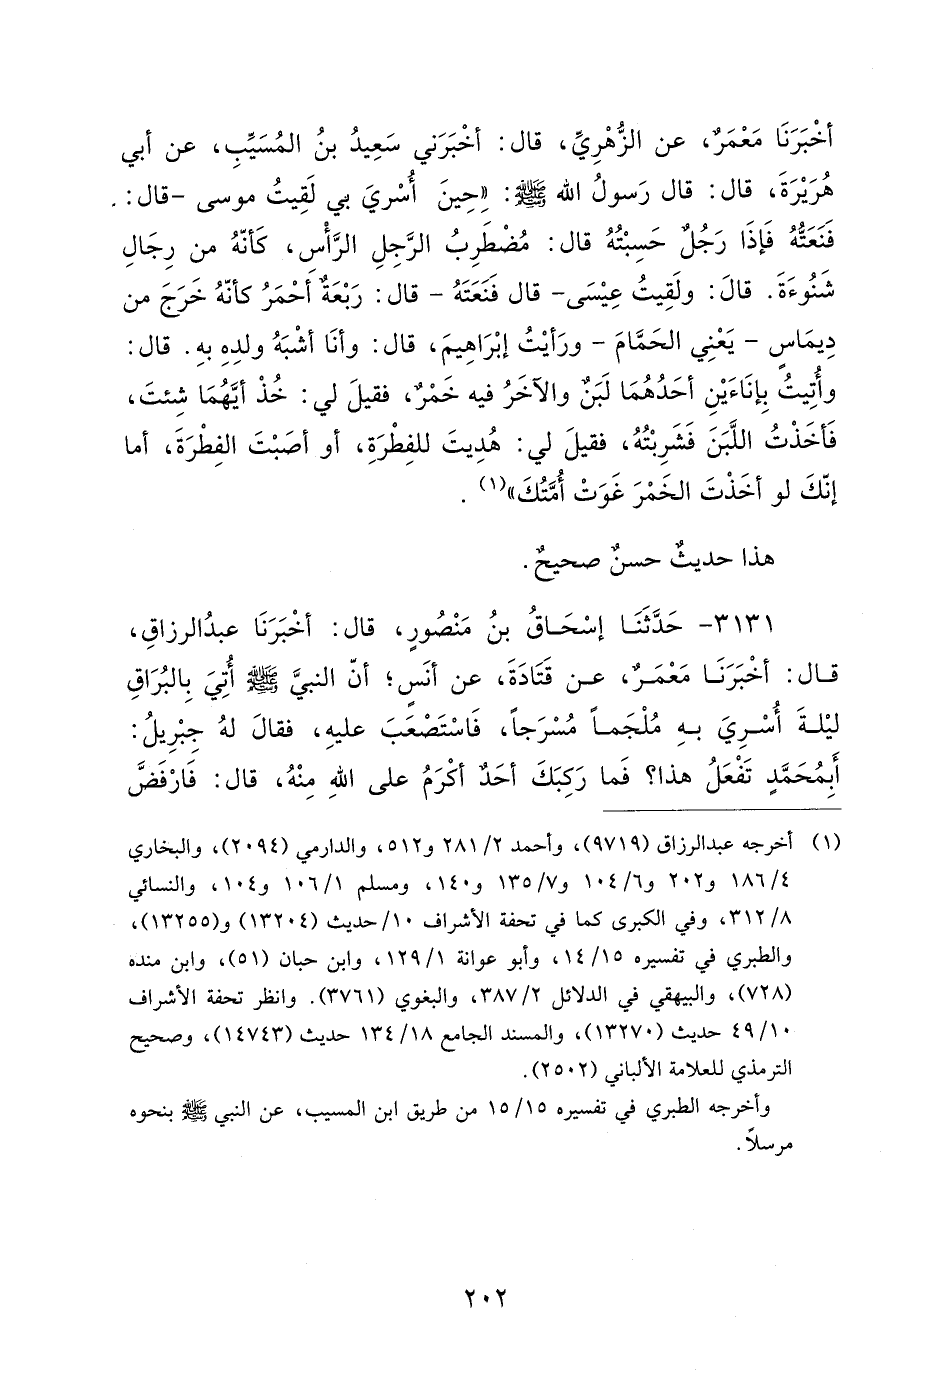 أخْبَرَنَا مَعْمَرٌ، عن الزُّهْرِيِّ، قال: أخْبَرَني سَعِيدُ بنُ المُسَيِّبِ، عن أبي
هُرَيْرَةَ، قال: قال رَسولُ الله ﷺ: «حِينَ أُسْرِيَ بي لَقِيتُ موسى –قال:
فَنَعَتُّهُ فَإذَا رَجُلٌ حَسِبْتُهُ قال: مُضْطَرِبُ الرَّجِلِ الرَّأْسِ، كَأنّهُ من رِجَالِ
شَنُوءَةَ. قالَ: ولَقِيتُ عِيْسَى– قال فَنَعَتَهُ – قال: رَبْعَةٌ أحْمَرُ كأنّهُ خَرَجَ من
دِيمَاسٍ – يَعْنِي الحَمَّامَ – ورَأيْتُ إبْرَاهِيمَ، قال: وأنَا أشْبَهُ ولدِهِ بِهِ. قال:
وأُتِيتُ بِإنَاءَيْنِ أحَدُهُمَا لَبَنٌ والآخَرُ فيه خَمْرٌ، فقيلَ لي: خُذْ أيَّهُمَا شِئتَ،
فَأخَذْتُ اللَّبَنَ فَشَرِبْتُهُ، فقيلَ لي: هُدِيتَ للفِطْرَةِ، أو أصَبْتَ الفِطْرَةَ، أما
إنّكَ لو أخَذْتَ الخَمْرَ غَوَتْ أُمَّتُكَ»(١) .
هذا حديثٌ حسنٌ صحيحٌ.
٣١٣١– حَدَّثَنَا إسْحَاقُ بنُ مَنْصُورٍ، قال: أخْبَرَنَا عبدُالرزاقِ،
قال: أخْبَرَنَا مَعْمَرٌ، عن قَتَادَةَ، عن أنَسٍ؛ أنّ النبيَّ ﷺ أُتِيَ بِالبُرَاقِ
ليْلةَ أُسْرِيَ بهِ مُلْجَماً مُسْرَجاً، فَاسْتَصْعَبَ عليهِ، فقالَ لهُ جِبْرِيلُ:
أَبِمُحَمَّدٍ تَفْعَلُ هذا؟ فَما رَكِبَكَ أحَدٌ أكْرَمُ على اللهِ مِنْهُ، قال: فَارْفَضَّ
(١) أخرجه عبدالرزاق (٩٧١٩)، وأحمد ٢/ ٢٨١ و٥١٢، والدارمي (٢٠٩٤)، والبخاري
٤/ ١٨٦ و٢٠٢ و٦/ ١٠٤ و٧/ ١٣٥ و١٤٠، ومسلم ١/ ١٠٦ و١٠٤، والنسائي
٨/ ٣١٢، وفي الكبرى كما في تحفة الأشراف ١٠/ حديث (١٣٢٠٤) و(١٣٢٥٥)،
والطبري في تفسيره ١٥/ ١٤، وأبو عوانة ١/ ١٢٩، وابن حبان (٥١)، وابن منده
(٧٢٨)، والبيهقي في الدلائل ٢/ ٣٨٧، والبغوي (٣٧٦١). وانظر تحفة الأشراف
١٠/ ٤٩ حديث (١٣٢٧٠)، والمسند الجامع ١٨/ ١٣٤ حديث (١٤٧٤٣)، وصحيح
الترمذي للعلامة الألباني (٢٥٠٢).
وأخرجه الطبري في تفسيره ١٥/ ١٥ من طريق ابن المسيب، عن النبي ﷺ بنحوه
مرسلاً.
٢٠٢